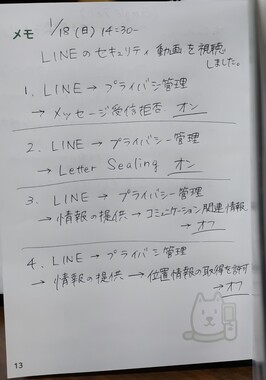 メモ 1/18(日) 14:30-
LINEのセキュリティ動画を視聴
しました。
1. LINE → プライバシ管理
→ メッセージ受信拒否 オン
2. LINE → プライバシー管理
→ Letter Sealing オン
3. LINE → プライバシー管理
→ 情報の提供 → コミュニケーション関連情報
→ オフ
4. LINE → プライバシ管理
→ 情報の提供 → 位置情報の取得を許可
→ オフ
13